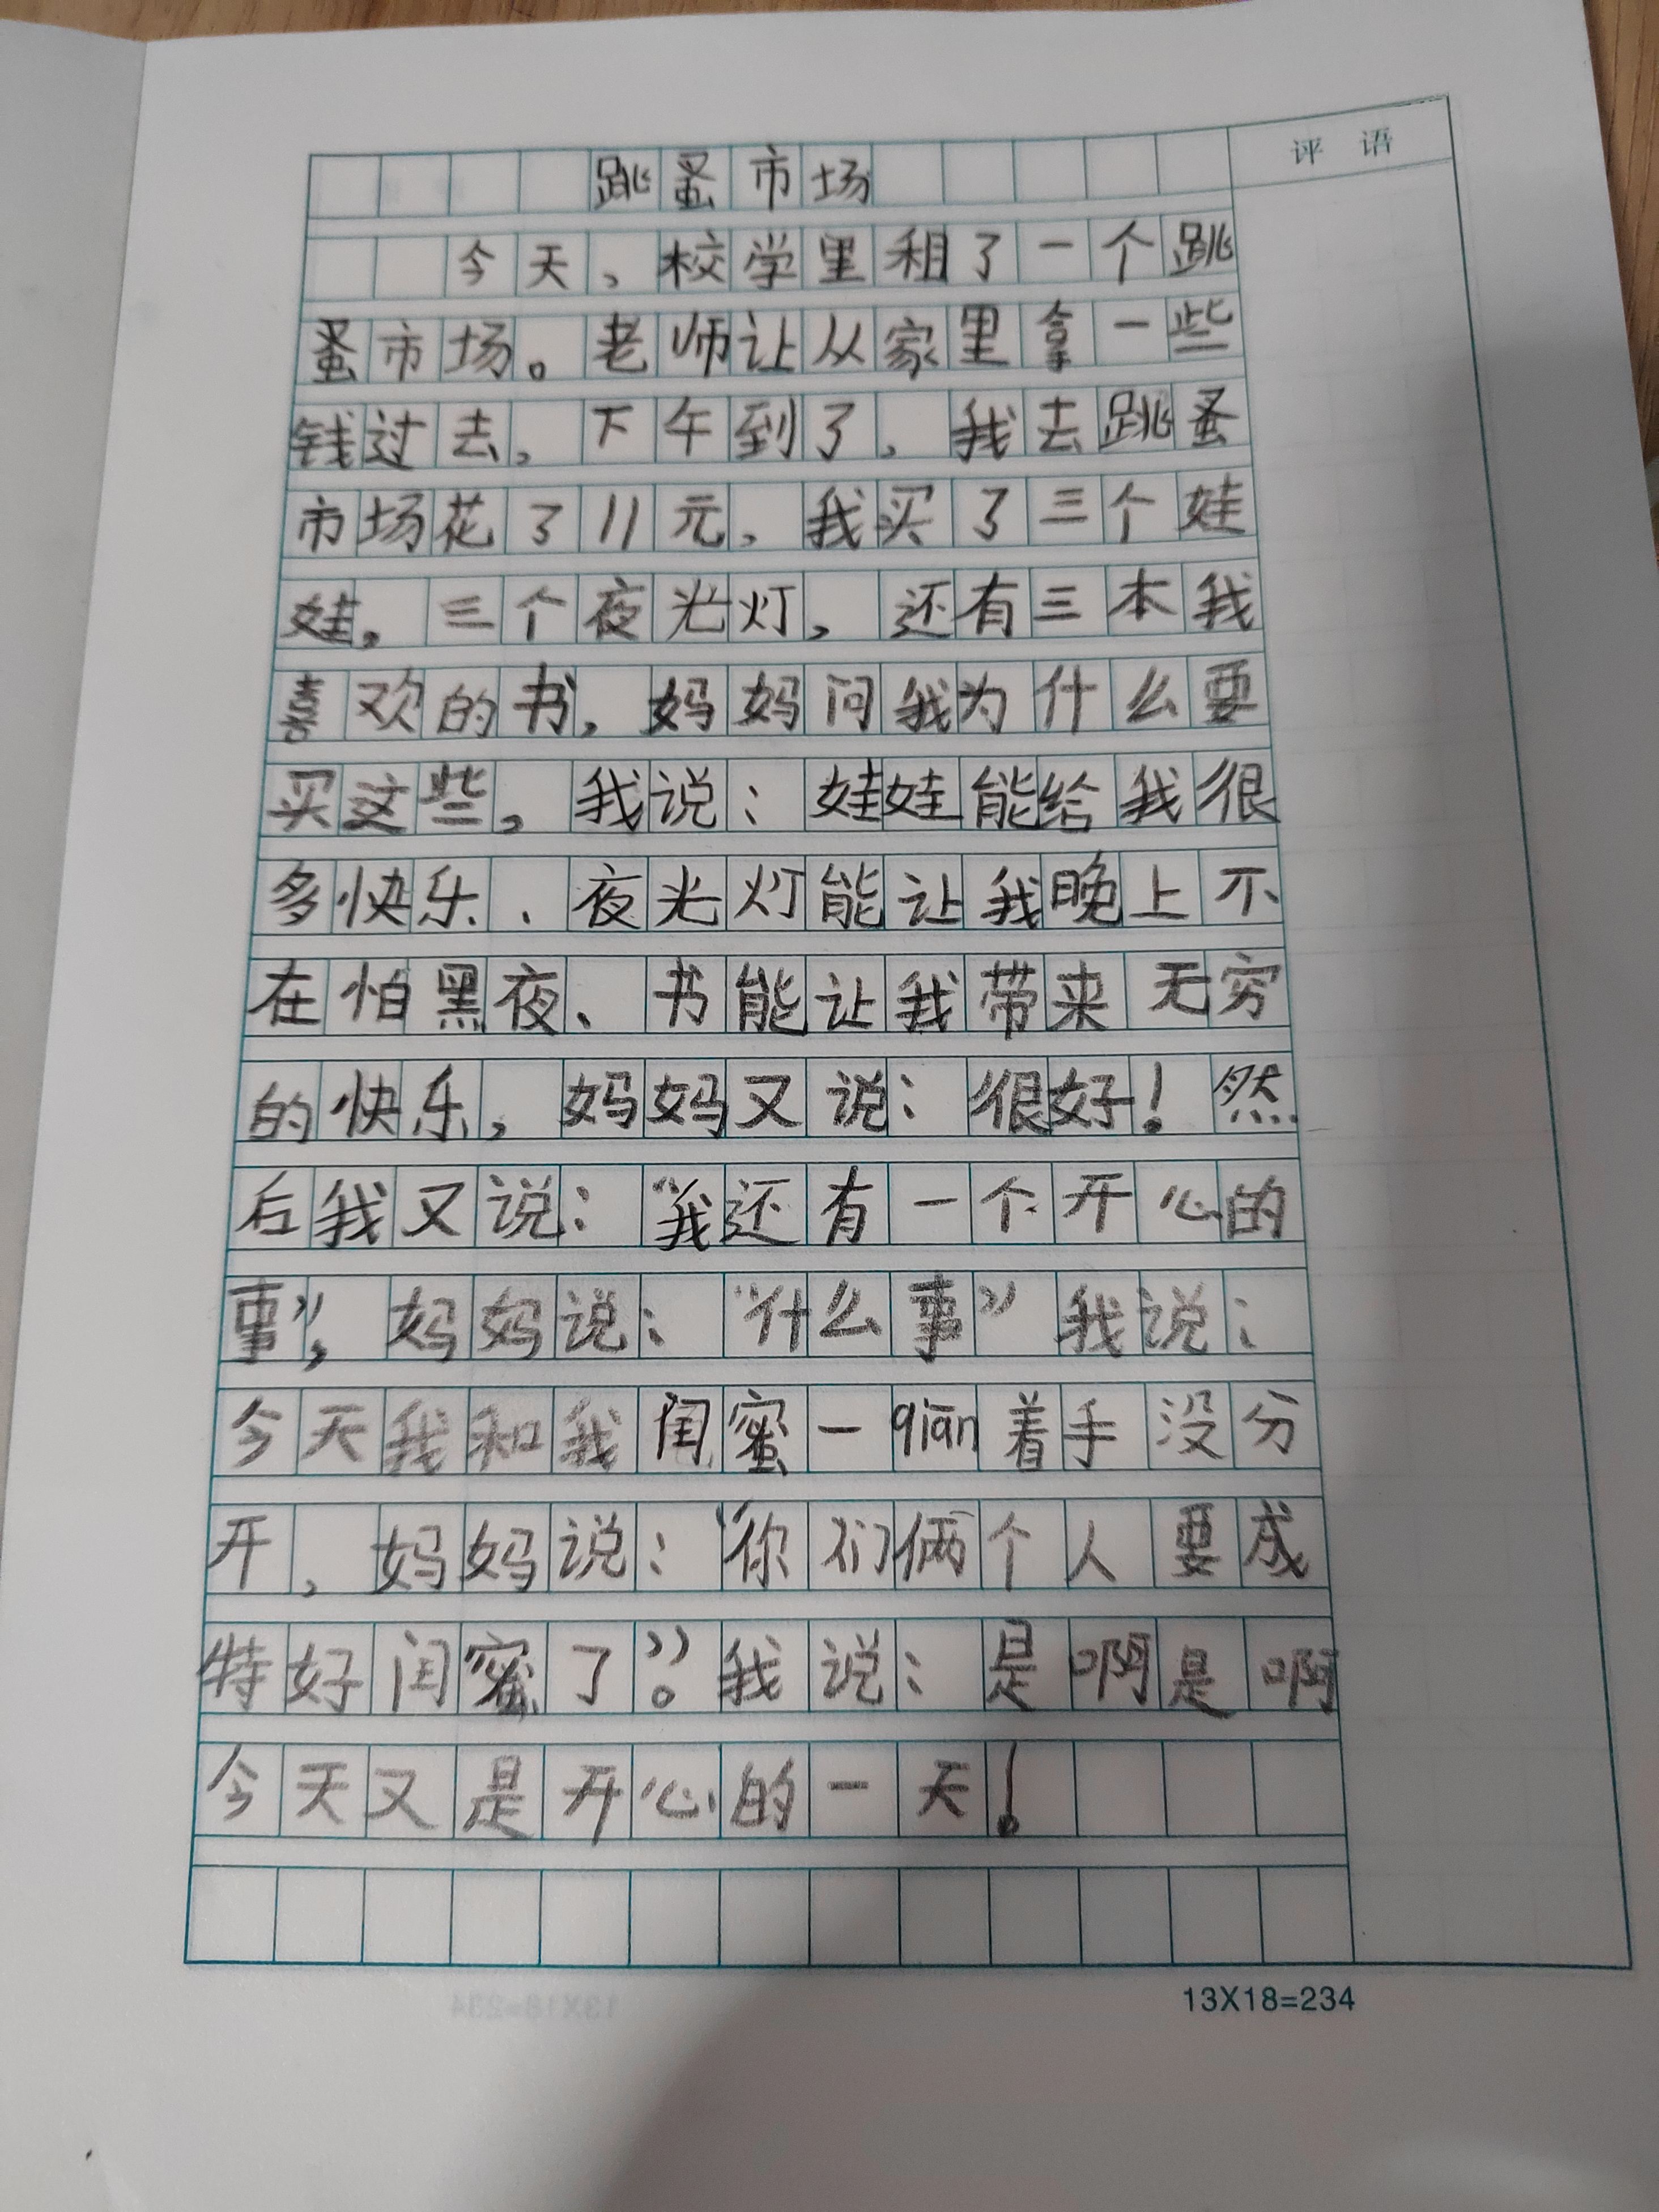 评 语
跳蚤市场
今天，校学里租了一个跳
蚤市场。老师让从家里拿一些
钱过去，下午到了，我去跳蚤
市场花了11元，我买了三个娃
娃，三个夜光灯，还有三本我
喜欢的书，妈妈问我为什么要
买这些，我说：娃娃能给我很
多快乐、夜光灯能让我晚上不
在怕黑夜、书能让我带来无穷
的快乐，妈妈又说：很好！然
后我又说：“我还有一个开心的
事”，妈妈说：“什么事”我说：
今天我和我闺蜜一qiān着手没分
开，妈妈说：“你们俩个人要成
特好闺蜜了”。我说：是啊是啊
今天又是开心的一天！
13X18=234